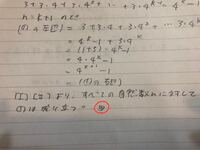 3+3・4+3・4²+ … 3・4ᵏ
n=k+1 のとき
(①の左辺) = 3+3・4+3・4²+ … 3・4ᵏ
= 4ᵏ-1+3・4ᵏ
= (1+3)・4ᵏ-1
= 4・4ᵏ-1
= 4ᵏ⁺¹-1
= (①の右辺)
より、すべての自然数nに対して
①は成り立つ。